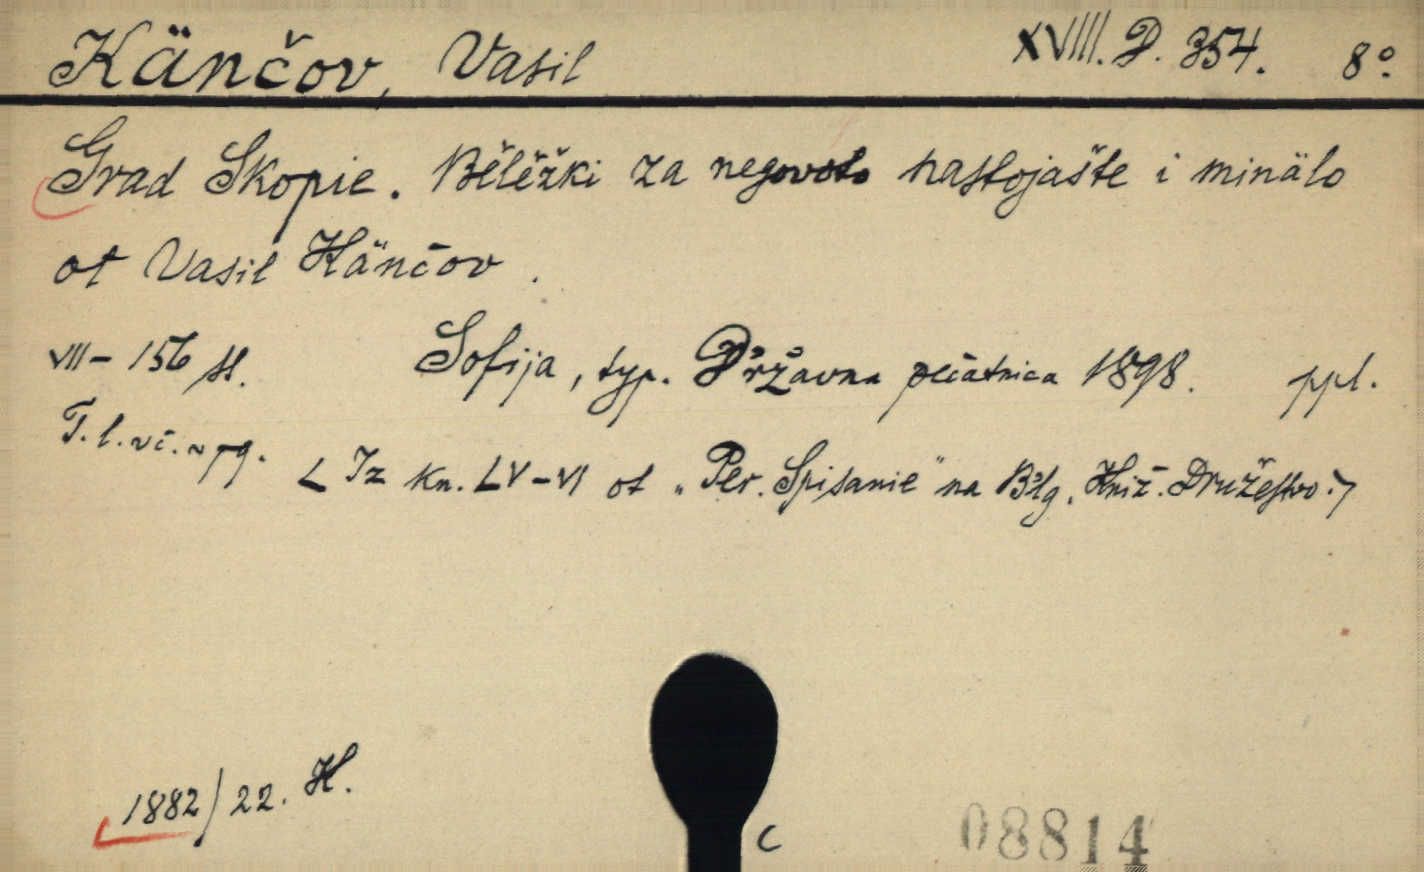 Känčov, Vasil XVIII. D. 354. 8°.
Grad Skopie. Bělěžki za negovoto nastojašte i minälo
ot Vasil Känčov.
VII - 156 st. Sofija, typ. Dʼržavna pečatnica 1898. ppl.
T. l.
Iz kn. LV-VI ot „Per. Spisanie" na Bʼlg. Kniž. Družestvo.
1882/22. H.
C
08814